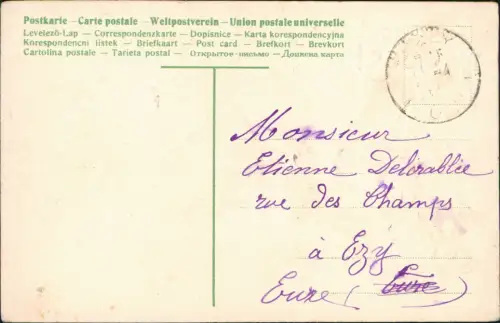 Postkarte — Carte postale — Weltpostverein — Union postale universelle
Levelezö-Lap — Correspondenzkarte — Dopisnice — Karta korespondencyjna
Korespondencni listek — Briefkaart — Post card — Brefkort — Brevkort
Cartolina postale — Tarjeta postal — Открытое письмо — Дописна карта
Monsieur
Etienne
rue des Champs
à Ezy
Eure (Eure)